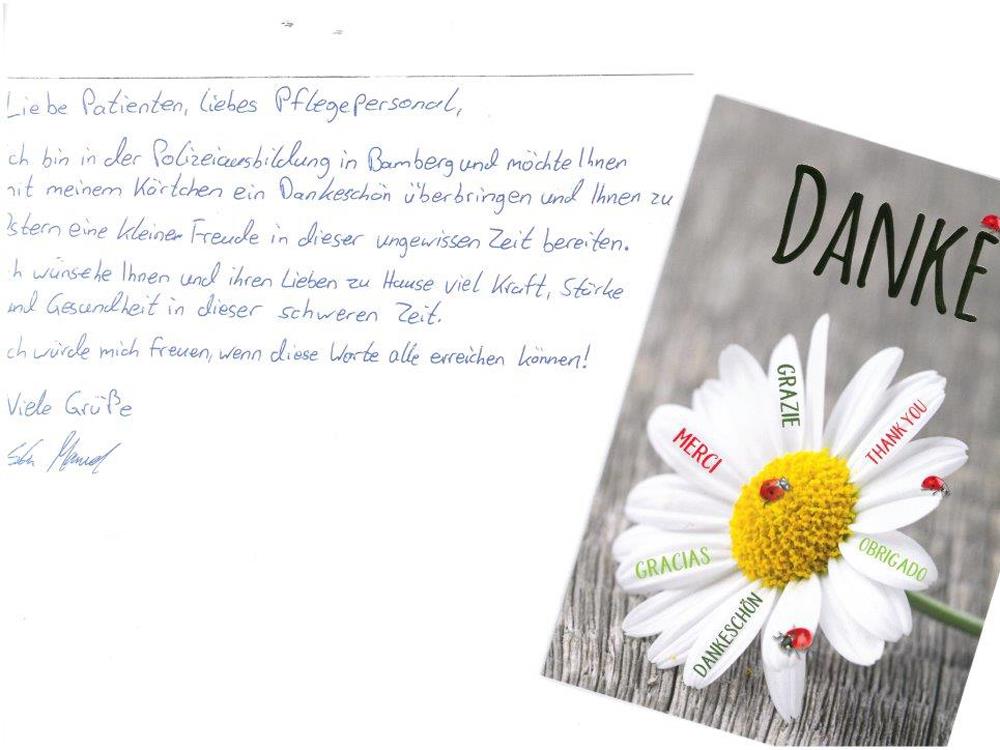 Liebe Patienten, liebes Pflegepersonal,
ch bin in der Polizeiausbildung in Bamberg und möchte Ihnen
mit meinem Kärtchen ein Dankeschön überbringen und Ihnen zu
Ostern eine kleine Freude in dieser ungewissen Zeit bereiten.
ch wünsche Ihnen und ihren Lieben zu Hause viel Kraft, Stärke
und Gesundheit in dieser schweren Zeit.
ch würde mich freuen, wenn diese Worte alle erreichen können!
Viele Grüße
DANKE
GRAZIE
THANK YOU
MERCI
OBRIGADO
GRACIAS
DANKESCHÖN